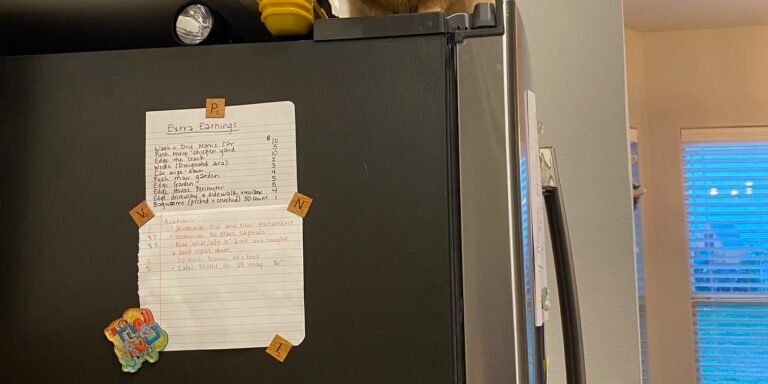 P
Extra Earnings
Wash + Dry Moms Car $10
Push mow chicken yard 5
Edge the creek 10
Weeds (Designated area) 2
Car wipe-down 3
Push mow garden 4
Edge Garden 5
Edge House Perimeter 5
Edge driveway + sidewalk + mailbox 4
Bagworms (picked + crushed) 50 count 1
V
N
Academic
old and new testament
$1 - memorize 50 State Capitals
$5 - Read book and complete
a book report sheet
2 - Spanish lesson
5 - Label States on US map
I